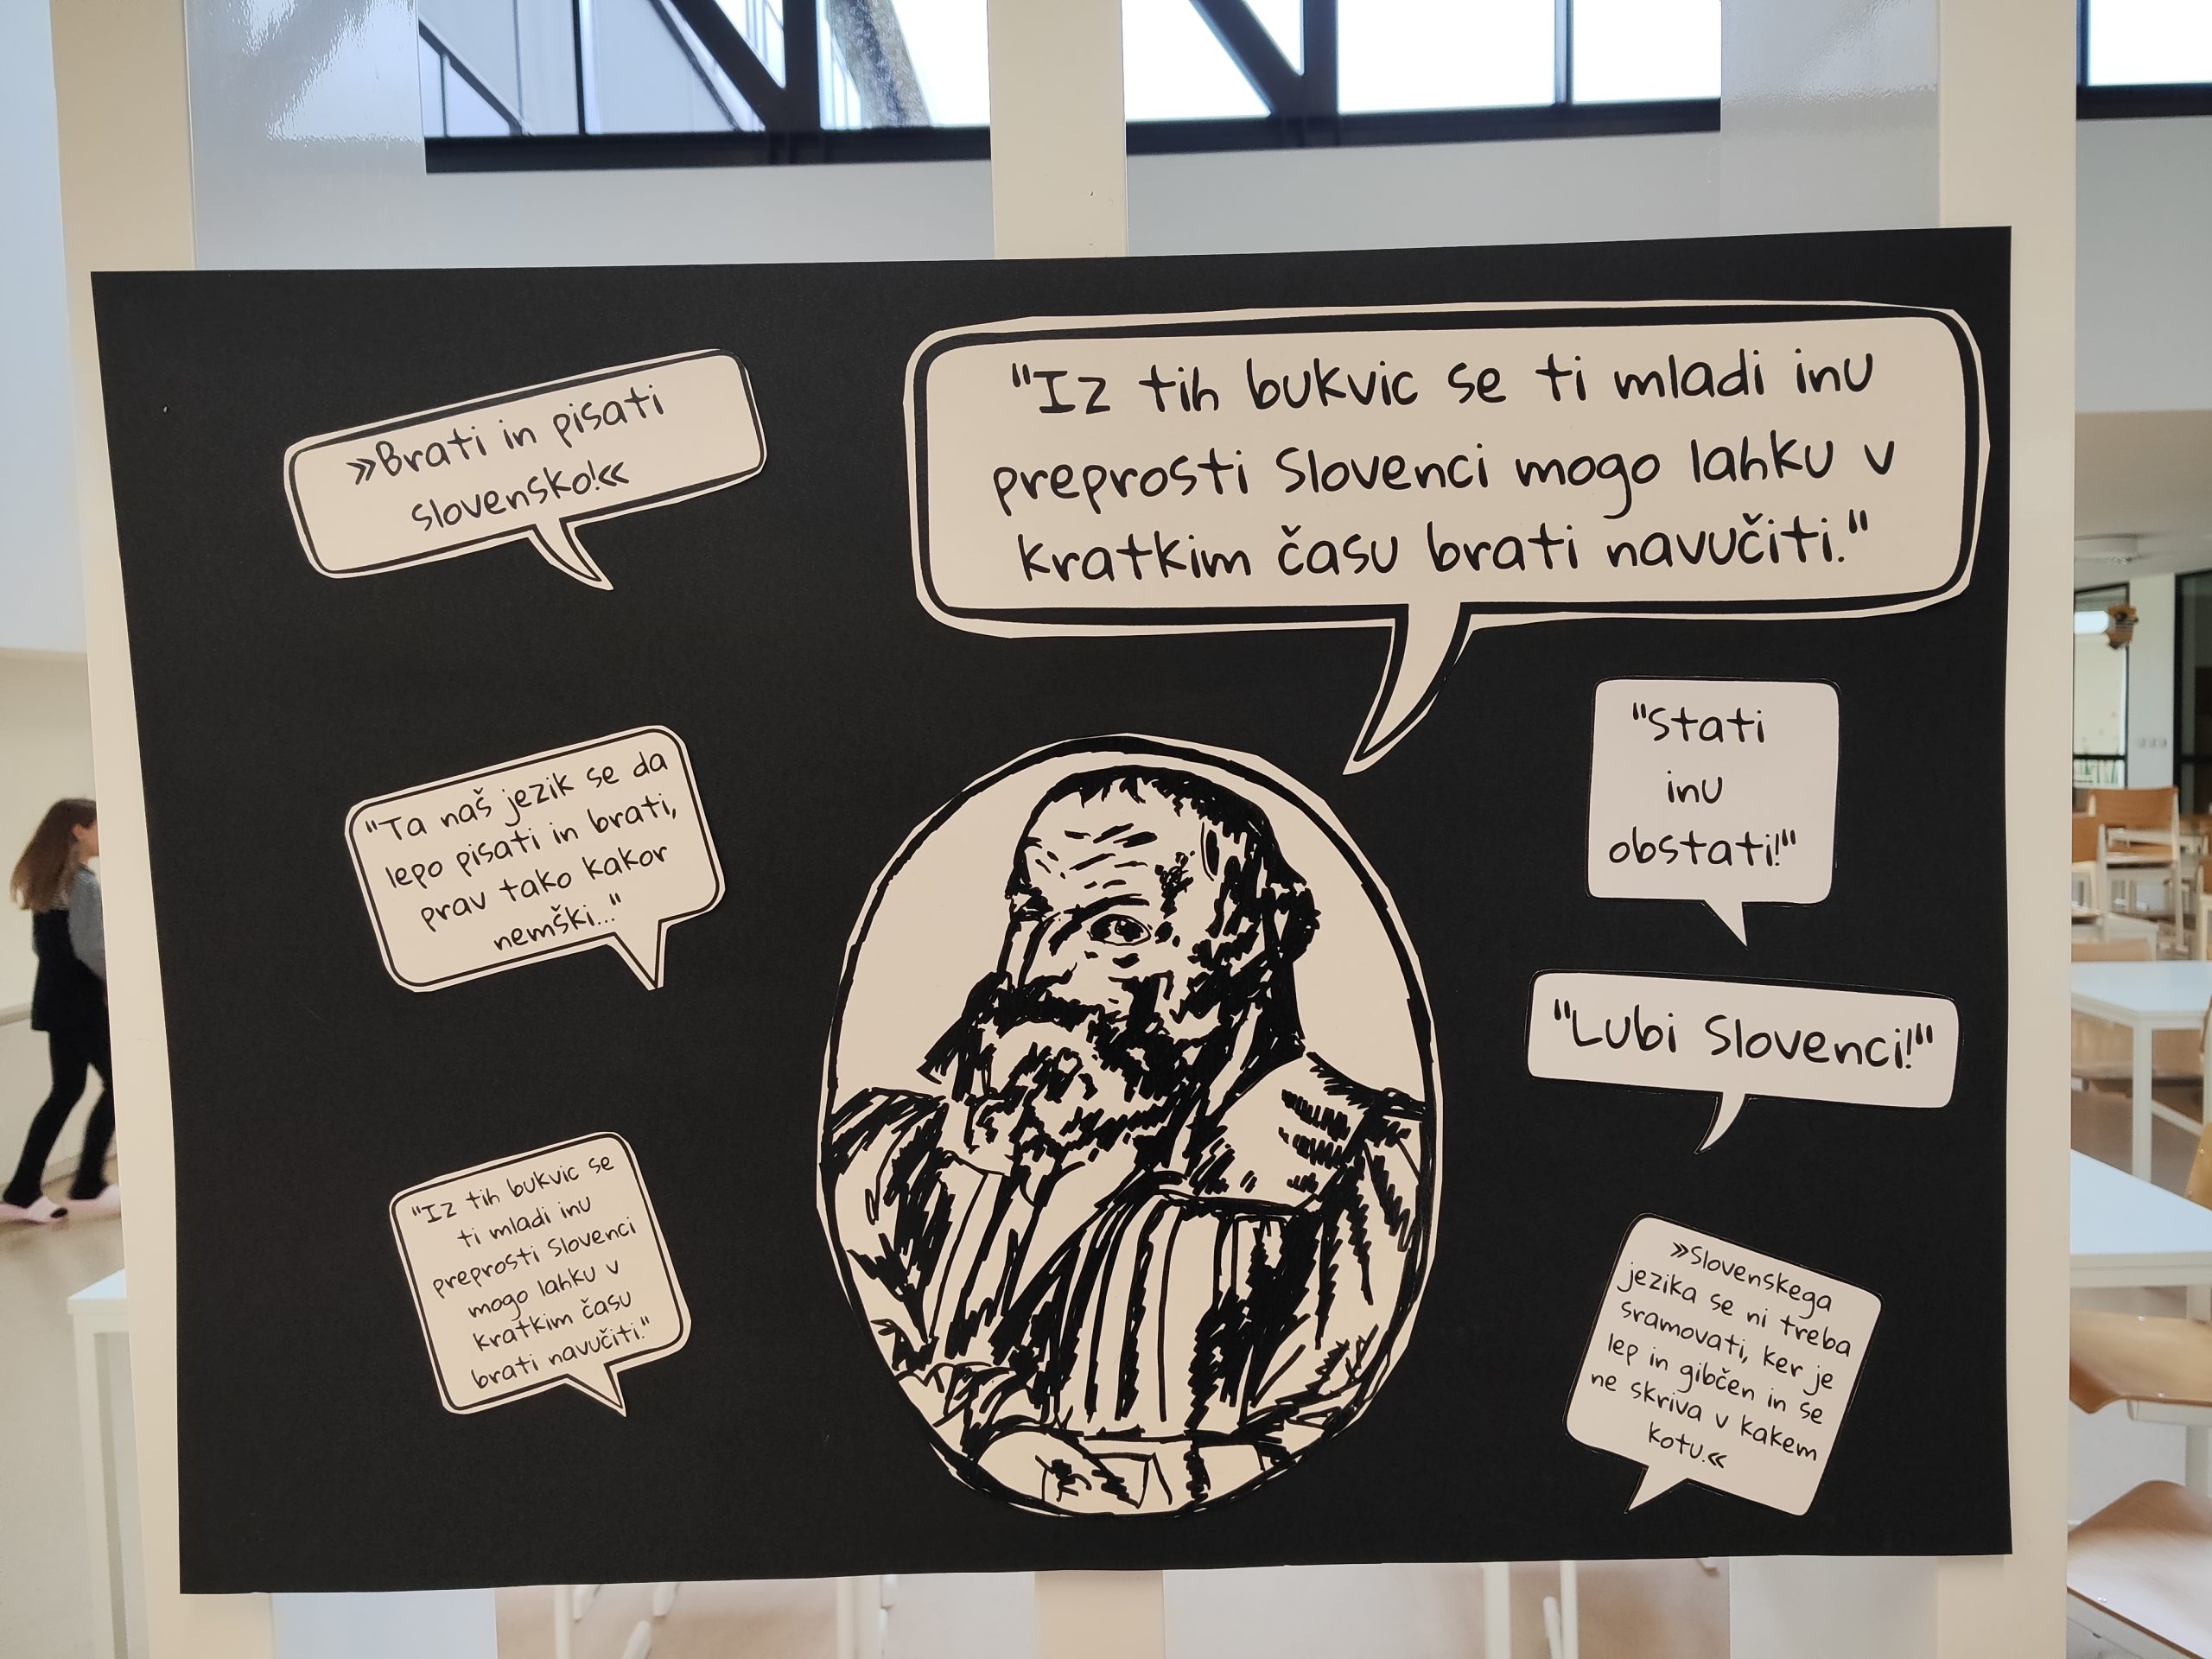 »Brati in pisati
slovensko!«
"Iz tih bukvic se ti mladi inu
preprosti Slovenci mogo lahku v
kratkim času brati navučiti."
"Ta naš jezik se da
lepo pisati in brati,
prav tako kakor
nemški..."
"Stati
inu
obstati!"
"Lubi Slovenci!"
"Iz tih bukvic se
ti mladi inu
preprosti Slovenci
mogo lahku v
kratkim času
brati navučiti."
»Slovenskega
jezika se ni treba
sramovati, ker je
lep in gibčen in se
ne skriva v kakem
kotu.«